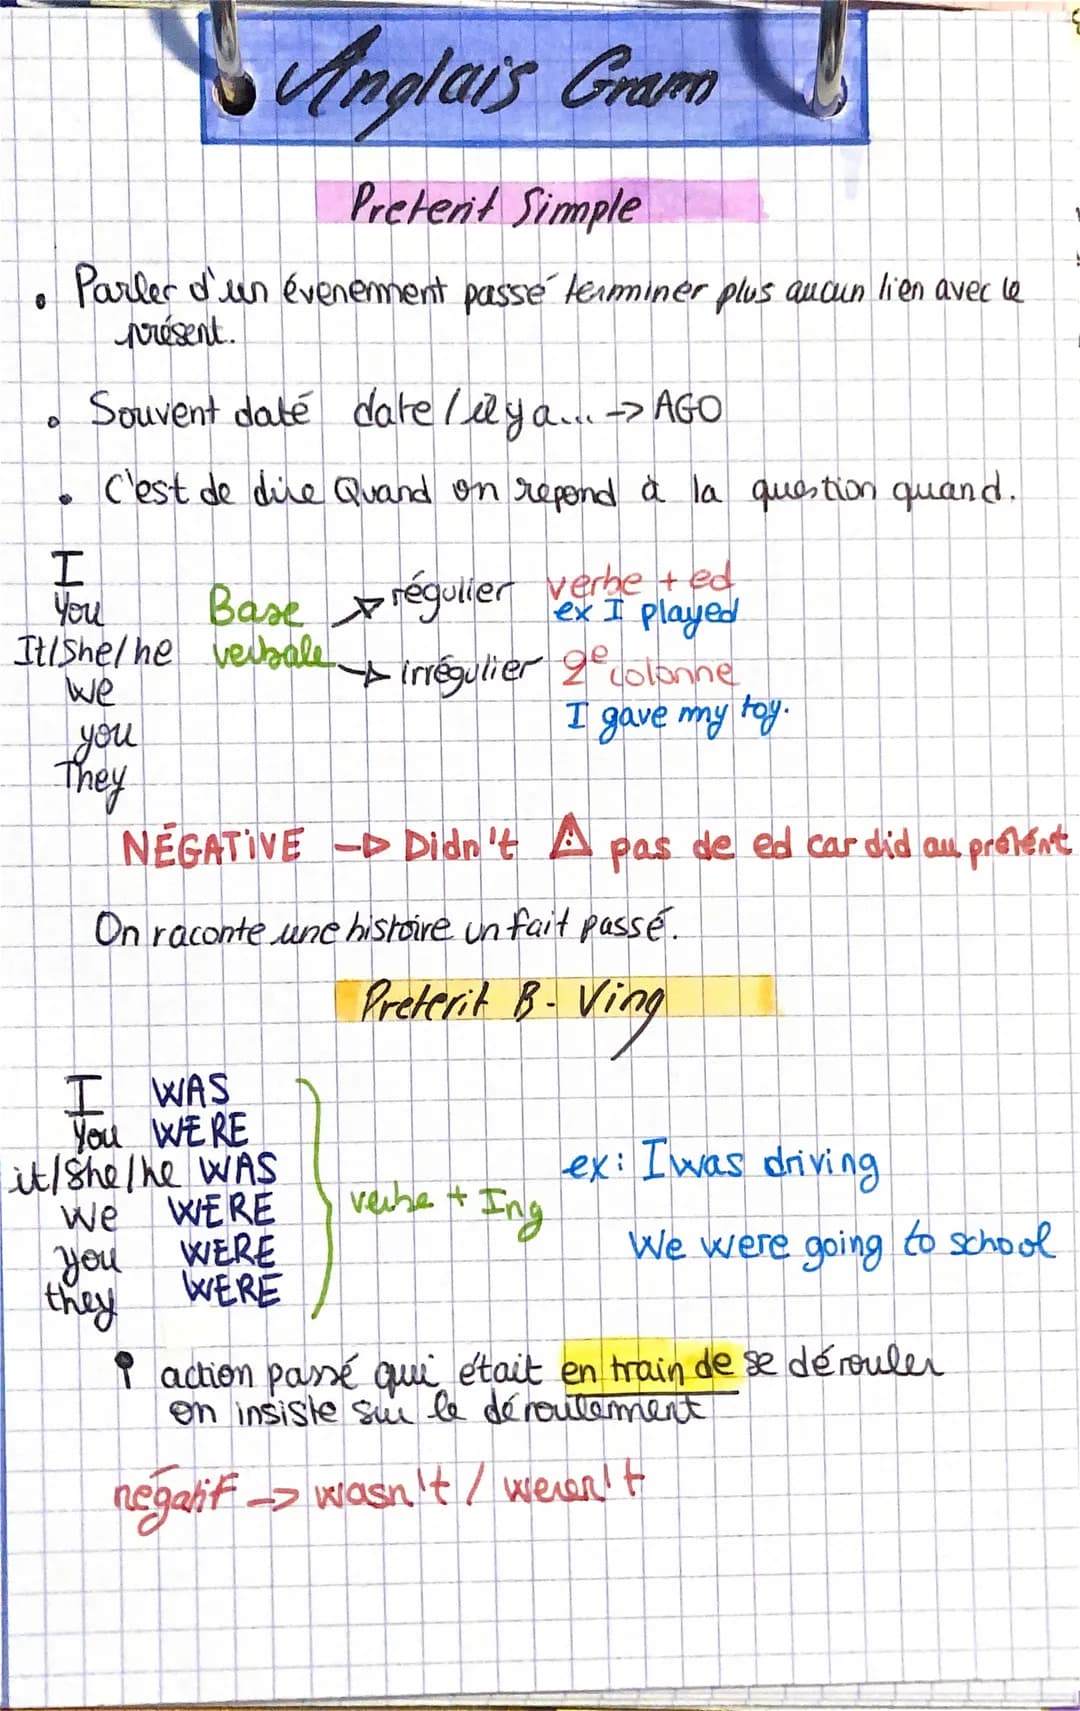 Anglais Gram
Preterit Simple
• Parler d'un évenement passé terminer plus aucun lien avec le
présent.
• Souvent daté date / il y a... -> AGO
• C'est de dire Quand on répond à la question quand.
I
You
It/She/he
we
you
They
Base
verbale
-> régulier verbe + ed
ex I played
-> irrégulier 2e colonne
I gave my toy.
NÉGATIVE -> Didn't ⚠ pas de ed car did au prétérit
On raconte une histoire un fait passé.
Preterit B- Ving
I WAS
You WERE
it/she/he WAS
we WERE
you WERE
they WERE
verbe + Ing
ex: I was driving
We were going to school
action passé qui était en train de se dérouler
on insiste sur le déroulement
négatif -> wasn't / weren't